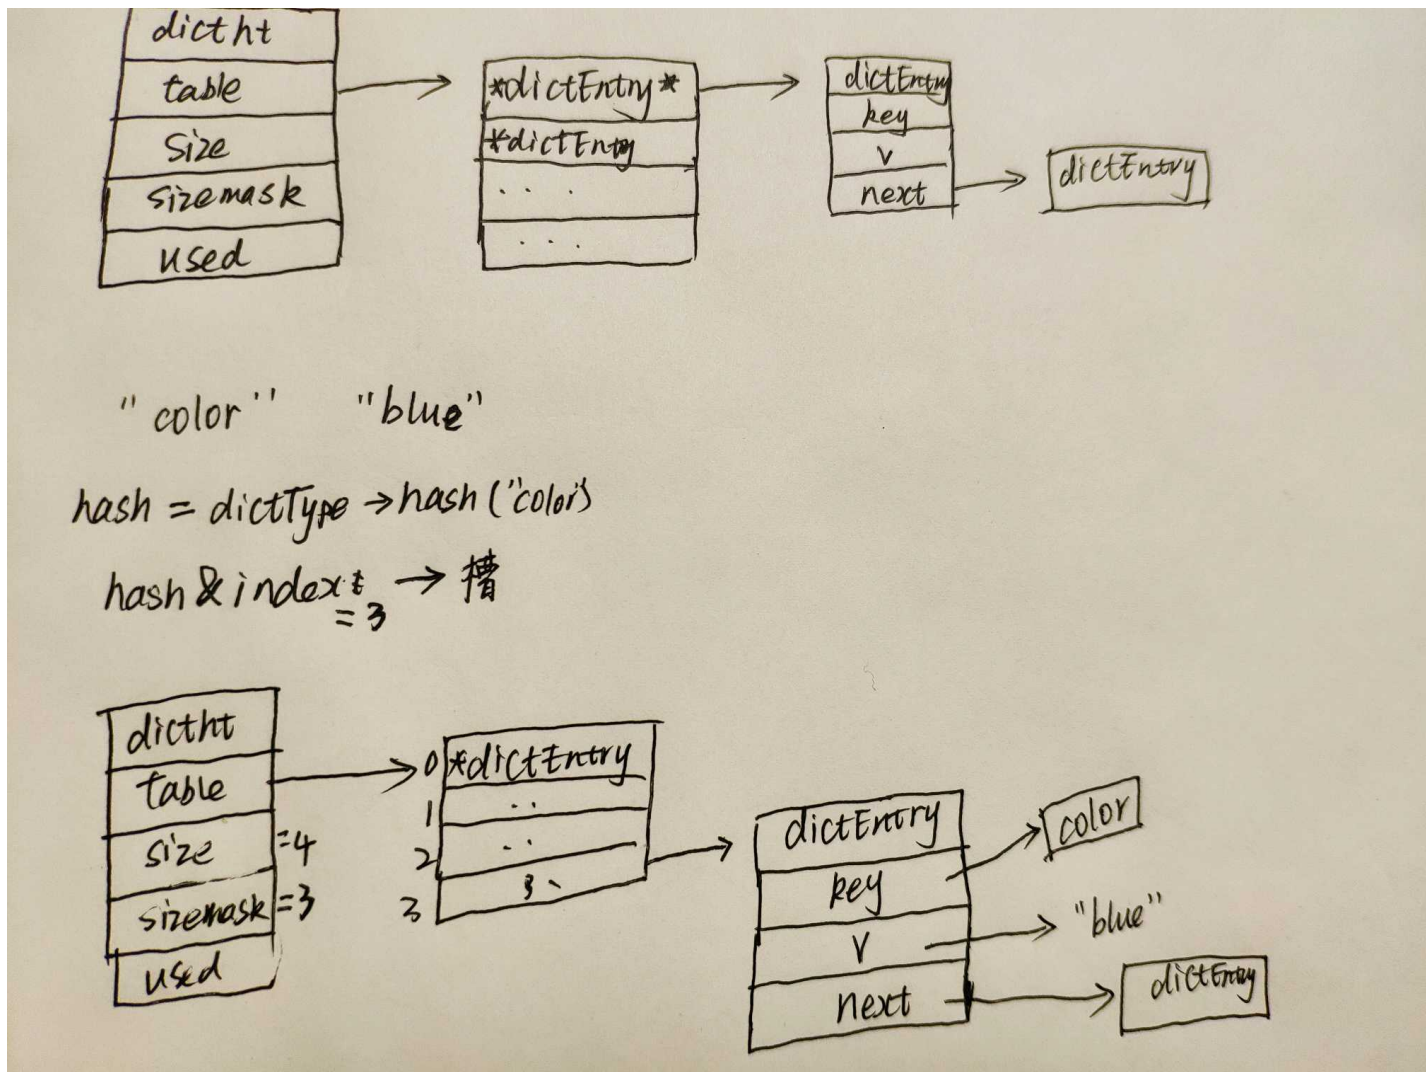 dictht
table
size
sizemask
used
*dictEntry*
*dictEntry
. . .
. . .
dictEntry
key
v
next
dictEntry
"color" "blue"
hash = dictType → hash ("color")
hash & index → 槽
= 3
dictht
table
size =4
sizemask =3
used
0 *dictEntry
1 ..
2 ..
3
dictEntry
key
v
next
color
"blue"
dictEntry